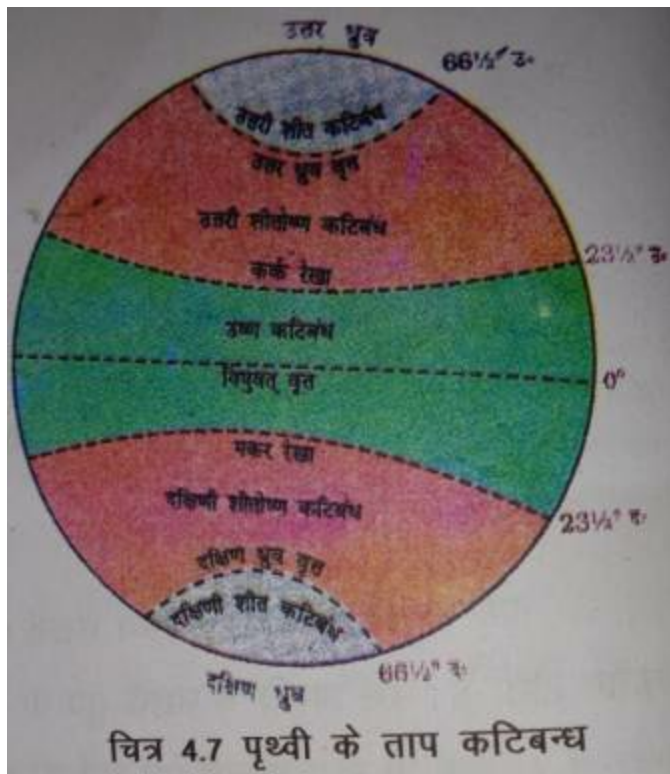 उत्तर ध्रुव
66½° उ॰
उत्तरी शीत कटिबंध
उत्तर ध्रुव वृत्त
उत्तरी शीतोष्ण कटिबंध
23½° उ॰
कर्क रेखा
उष्ण कटिबंध
विषुवत् वृत्त
0°
मकर रेखा
दक्षिणी शीतोष्ण कटिबंध
23½° द॰
दक्षिण ध्रुव वृत्त
दक्षिणी शीत कटिबंध
66½° द॰
दक्षिण ध्रुव
चित्र 4.7 पृथ्वी के ताप कटिबन्ध